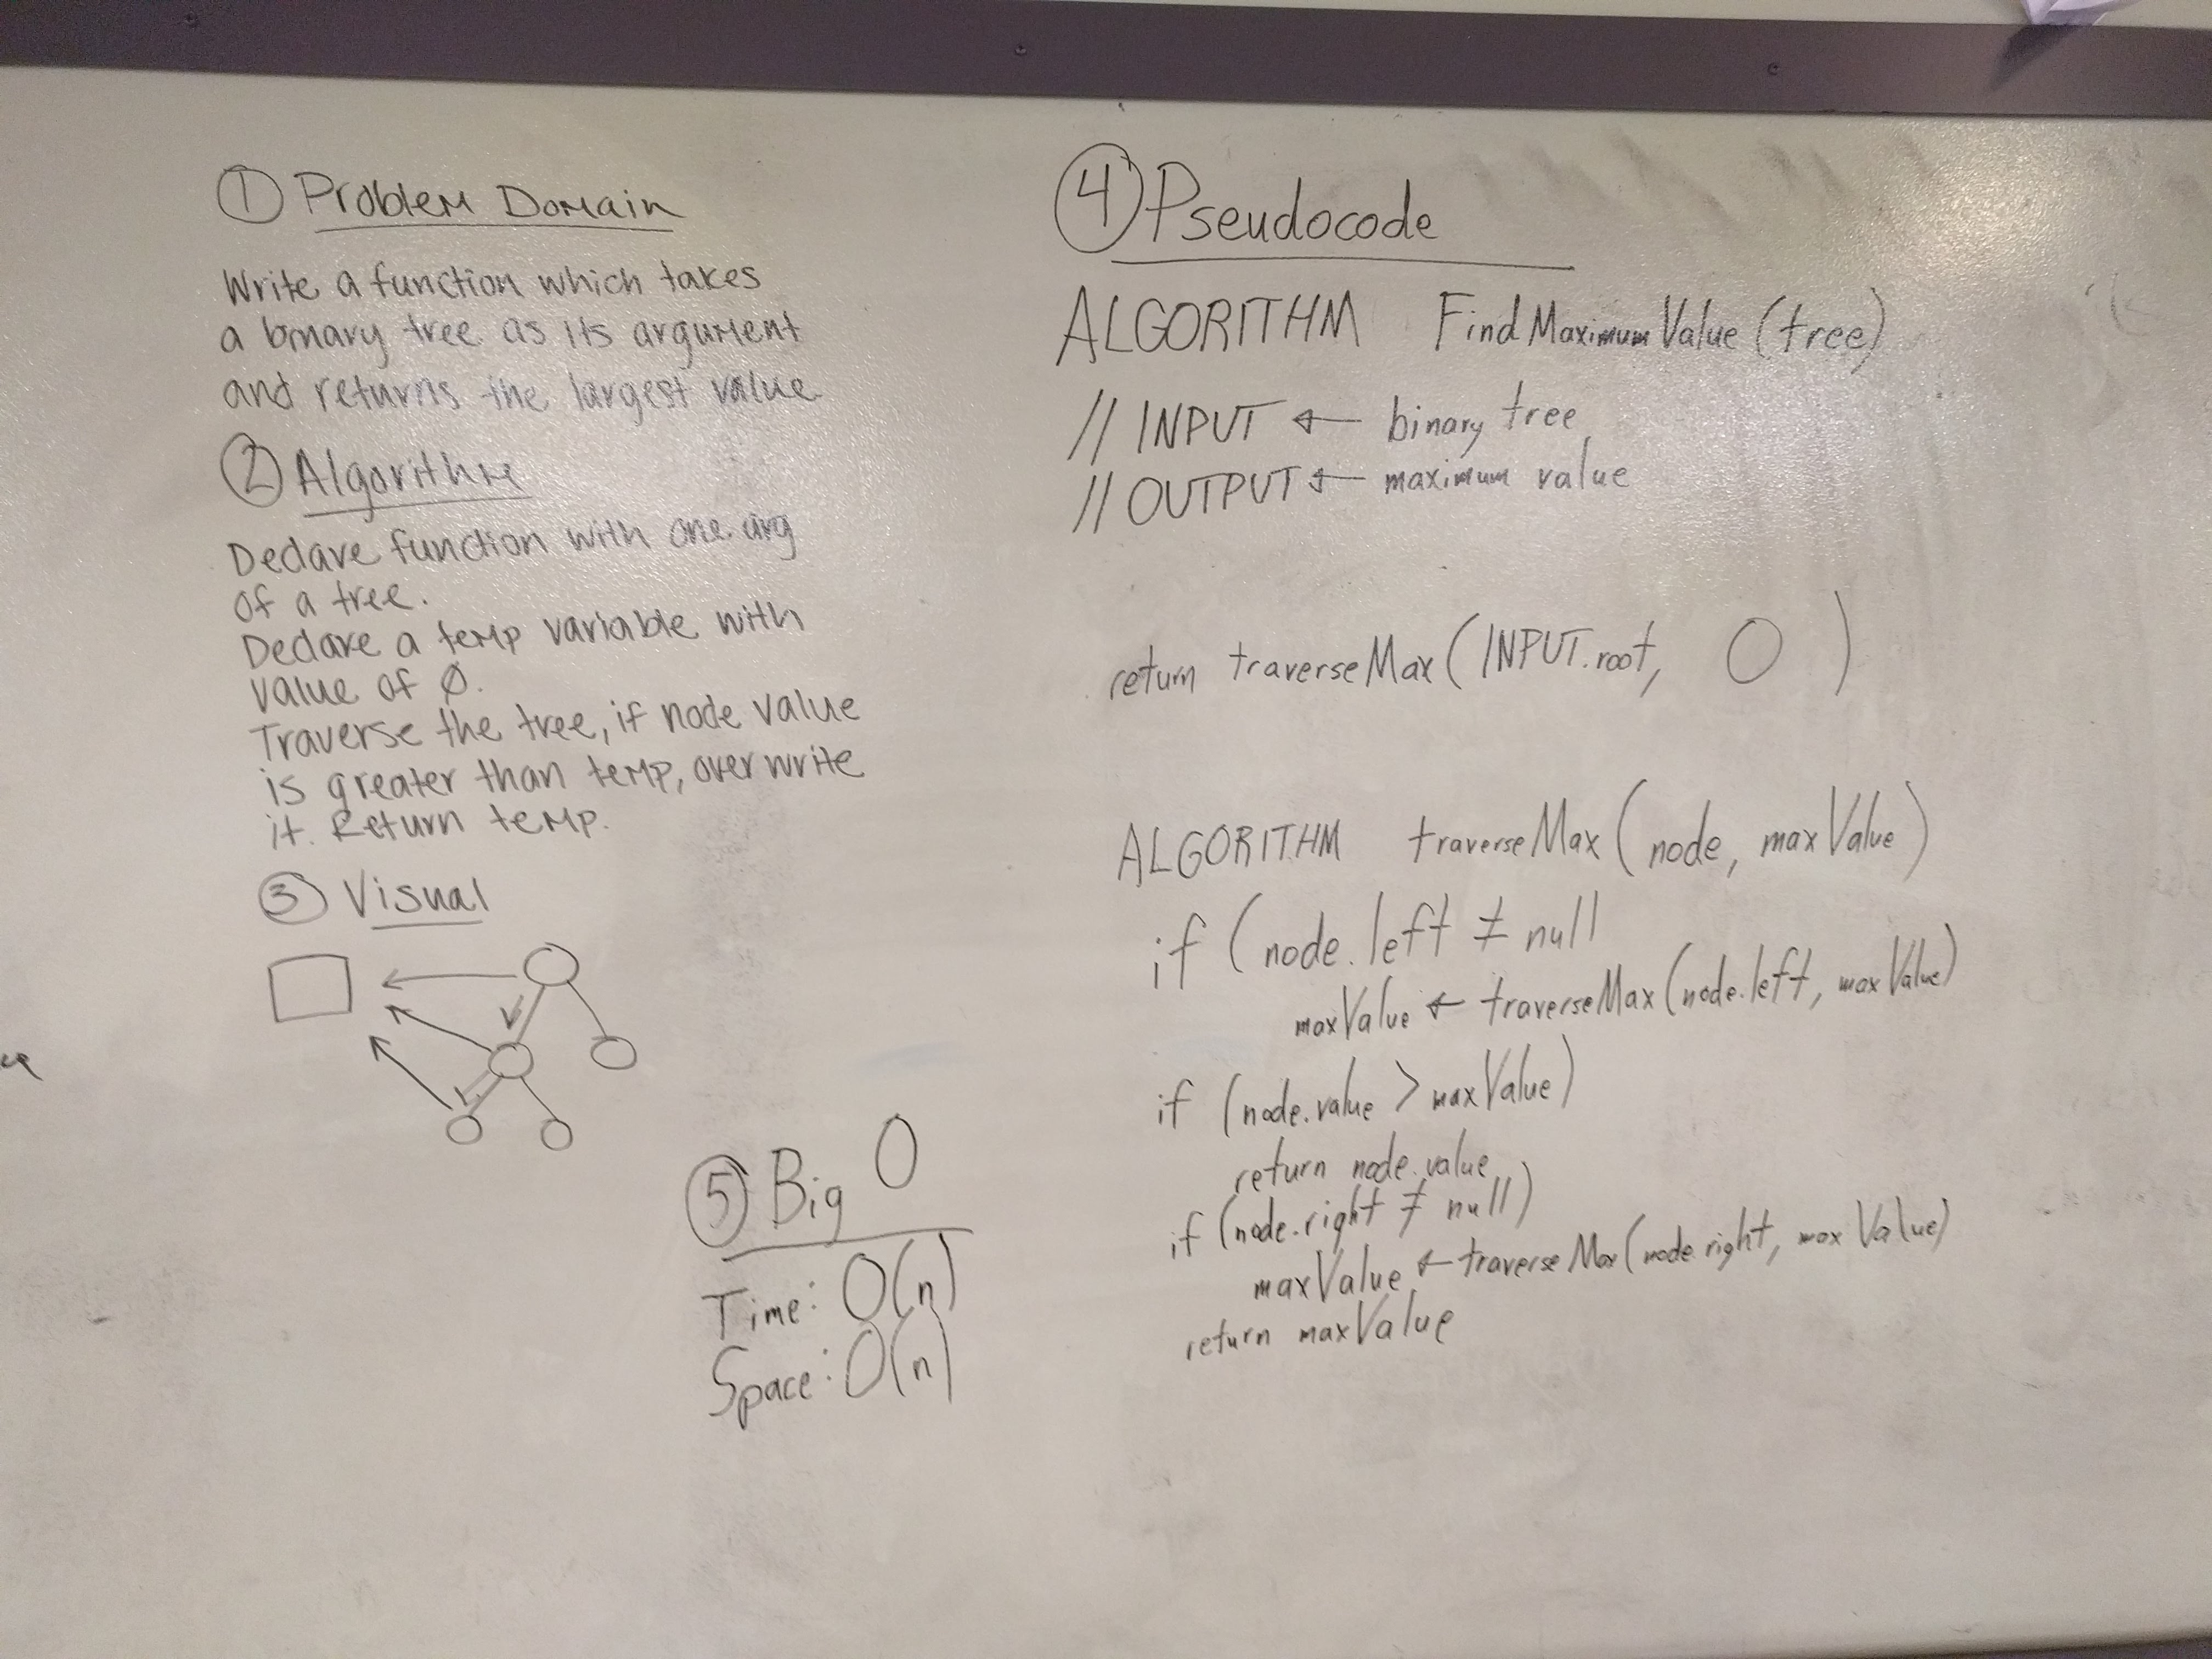 ① Problem Domain
Write a function which takes
a binary tree as its argument
and returns the largest value
② Algorithm
Declare function with one arg
of a tree.
Declare a temp variable with
value of Ø.
Traverse the tree, if node value
is greater than temp, overwrite
it. Return temp.
③ Visual
⑤ Big O
Time: O(n)
Space: O(n)
④ Pseudocode
ALGORITHM FindMaximumValue (tree)
// INPUT ← binary tree
// OUTPUT ← maximum value
return traverseMax (INPUT.root, 0)
ALGORITHM traverseMax (node, maxValue)
if (node.left ≠ null
maxValue ← traverseMax (node.left, maxValue)
if (node.value > maxValue)
return node.value
if (node.right ≠ null)
maxValue ← traverseMax (node.right, maxValue)
return maxValue